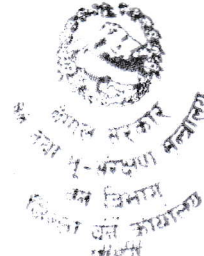 नेपाल सरकार
वन तथा भू-संरक्षण मन्त्रालय
वन विभाग
जिल्ला वन कार्यालय